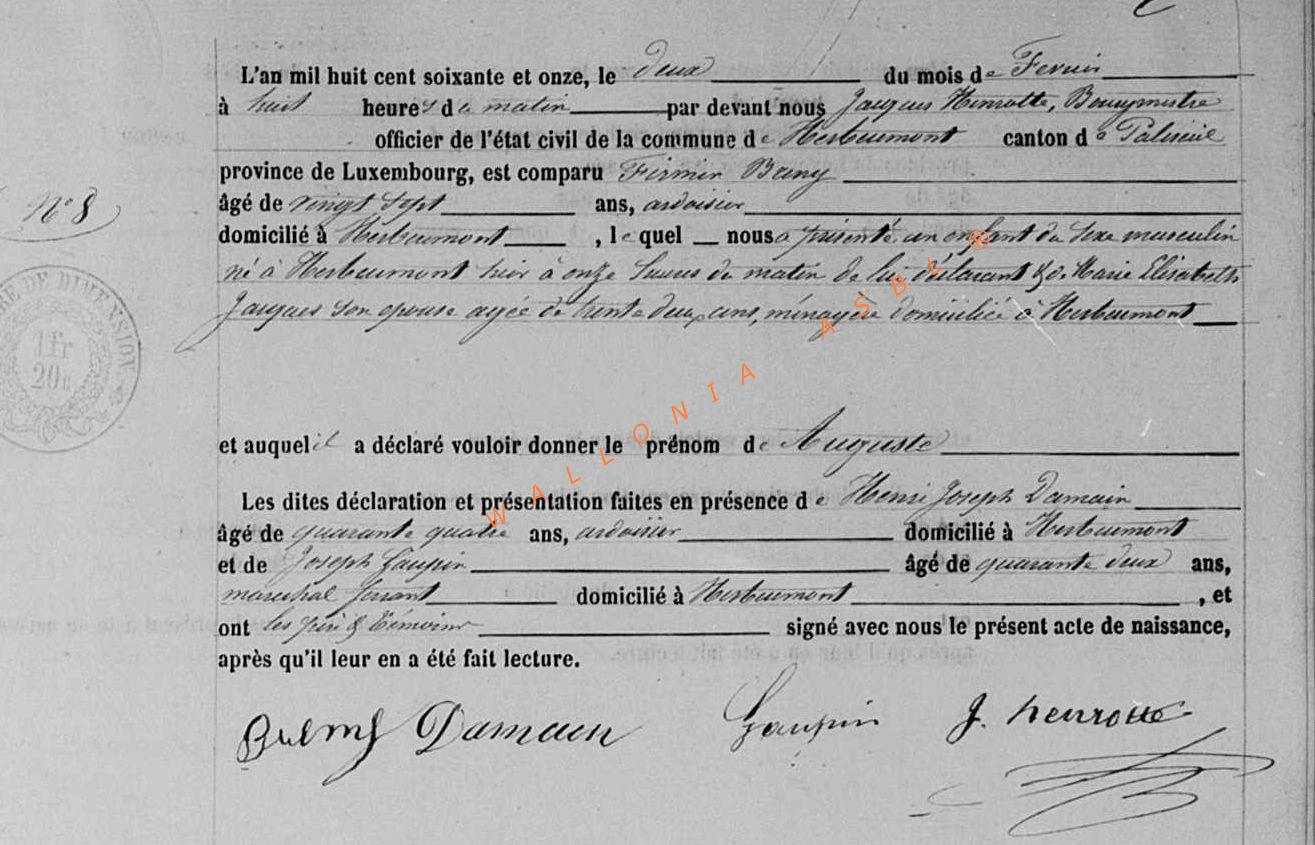 L'an mil huit cent soixante et onze, le deux du mois de Fevrier
à huit heures du matin par devant nous Jacques Henrotte, Bourgmestre
officier de l'état civil de la commune de Herbeumont canton de Paliseul
province de Luxembourg, est comparu Firmin
N° 8
âgé de vingt sept ans, ardoisier
domicilié à Herbeumont, lequel nous a présenté un enfant du sexe masculin
né à Herbeumont hier à onze heures du matin de lui déclarant & de Marie Elisabeth
Jacques son epouse agée de trente deux ans, ménagère domiciliée à Herbeumont
RE DE DIMENSION
1 fr
20c
WALLONIA ASBL ®
et auquel il a déclaré vouloir donner le prénom de Auguste
Les dites déclaration et présentation faites en présence de Henri Joseph Damain
âgé de quarante quatre ans, ardoisier domicilié à Herbeumont
et de Joseph Gaupin âgé de quarante deux ans,
marechal ferrant domicilié à Herbeumont, et
ont les père & témoins signé avec nous le présent acte de naissance,
après qu'il leur en a été fait lecture.
Damain Gaupin J. henrotte